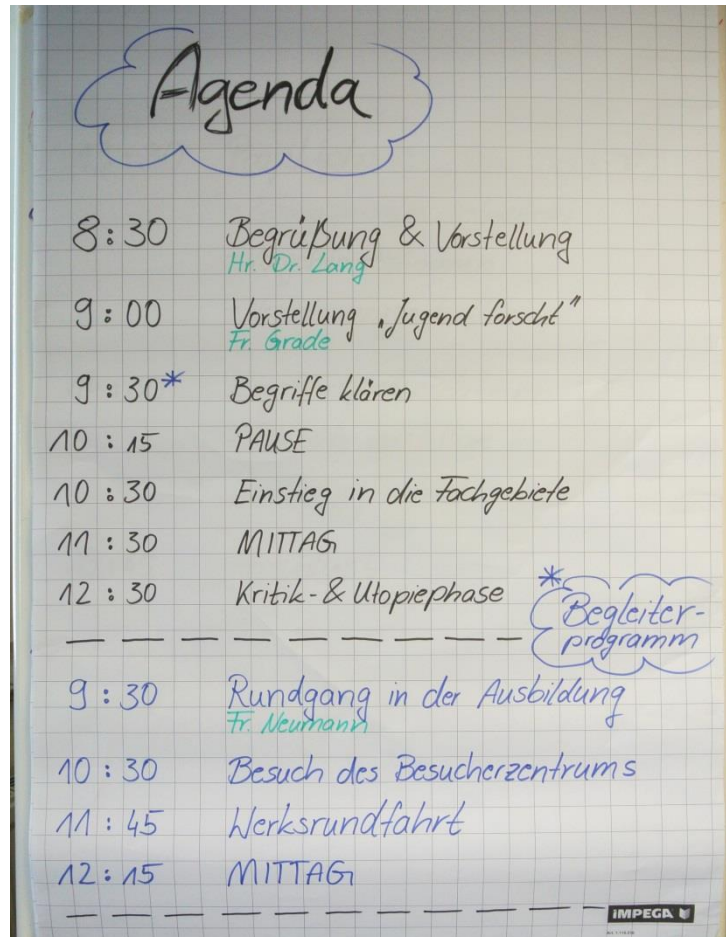 Agenda
8:30 Begrüßung & Vorstellung
Hr. Dr. Lang
9:00 Vorstellung „Jugend forscht"
Fr. Grade
9:30* Begriffe klären
10:15 PAUSE
10:30 Einstieg in die Fachgebiete
11:30 MITTAG
12:30 Kritik- & Utopiephase
* Begleiter-
programm
9:30 Rundgang in der Ausbildung
Fr. Neumann
10:30 Besuch des Besucherzentrums
11:45 Werksrundfahrt
12:15 MITTAG
IMPEGA